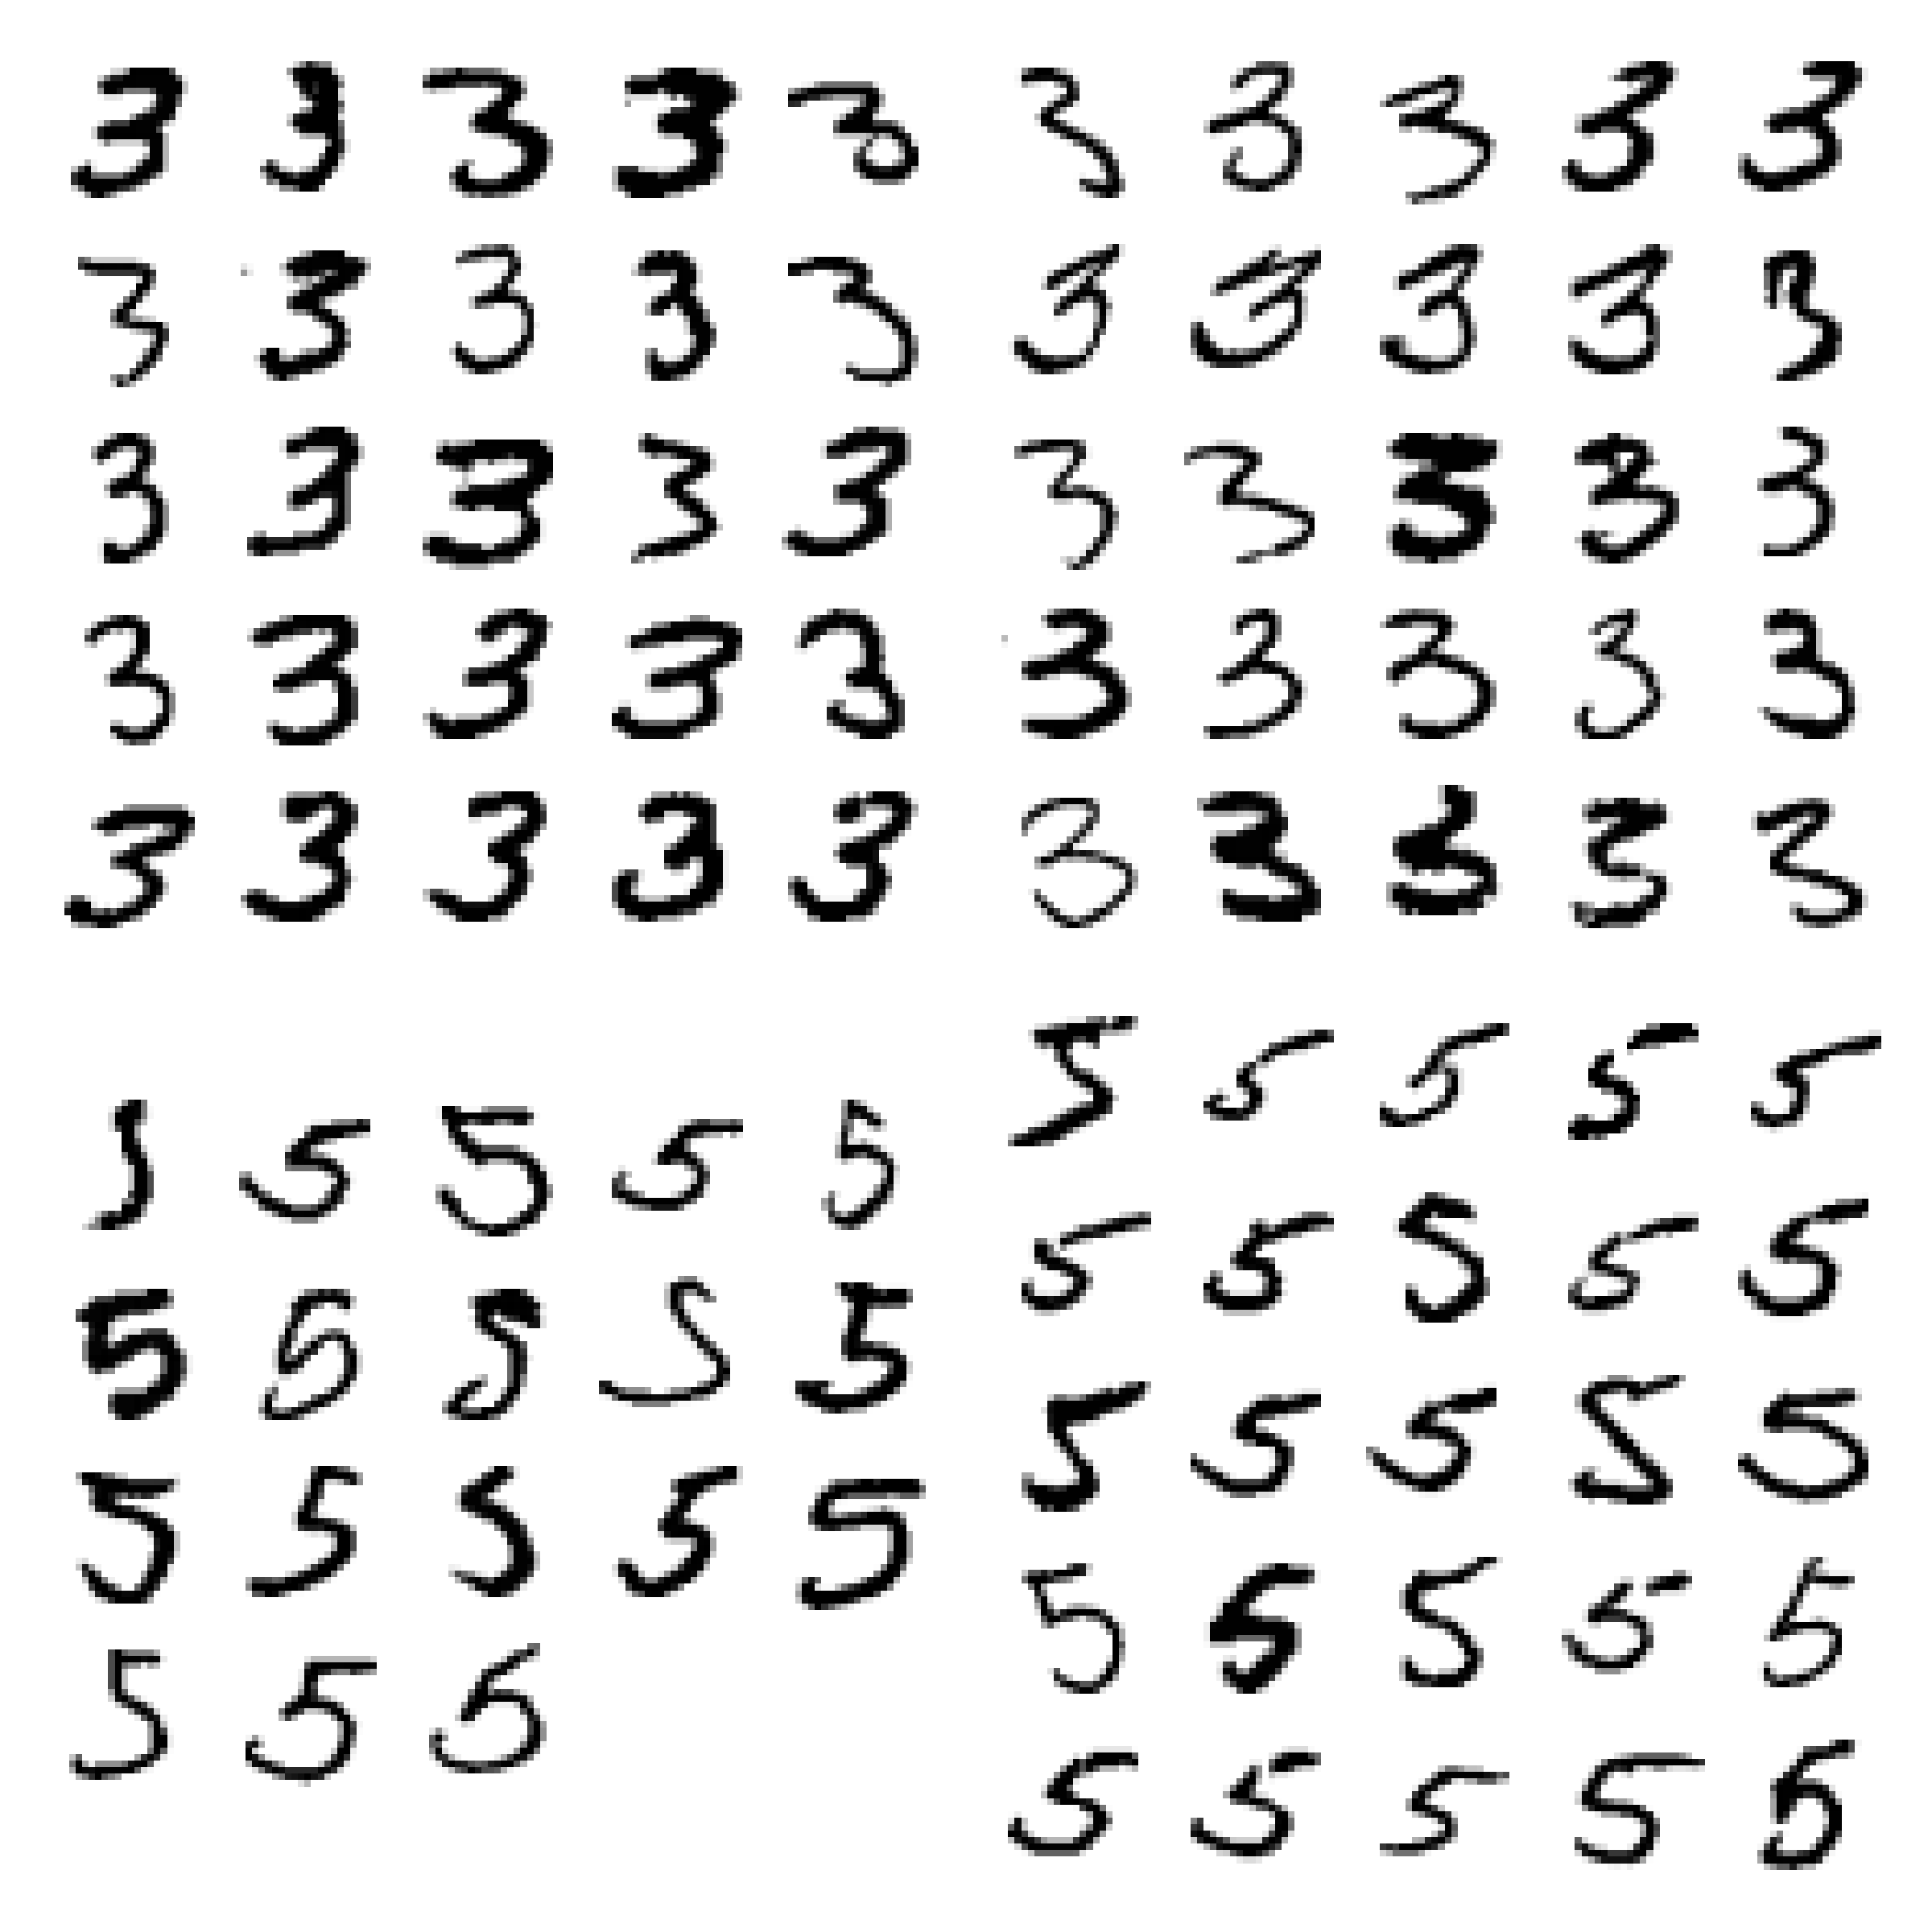 3 3 3 3 3 3 3 3 3 3
3 3 3 3 3 3 3 3 3 3
3 3 3 3 3 3 3 3 3 3
3 3 3 3 3 3 3 3 3 3
3 3 3 3 3 3 3 3 3 3
5 5 5 5 5
5 5 5 5 5
5 5 5 5 5
5 5 5
5 5 5 5 5
5 5 5 5 5
5 5 5 5 5
5 5 5 5 5
5 5 5 5 5